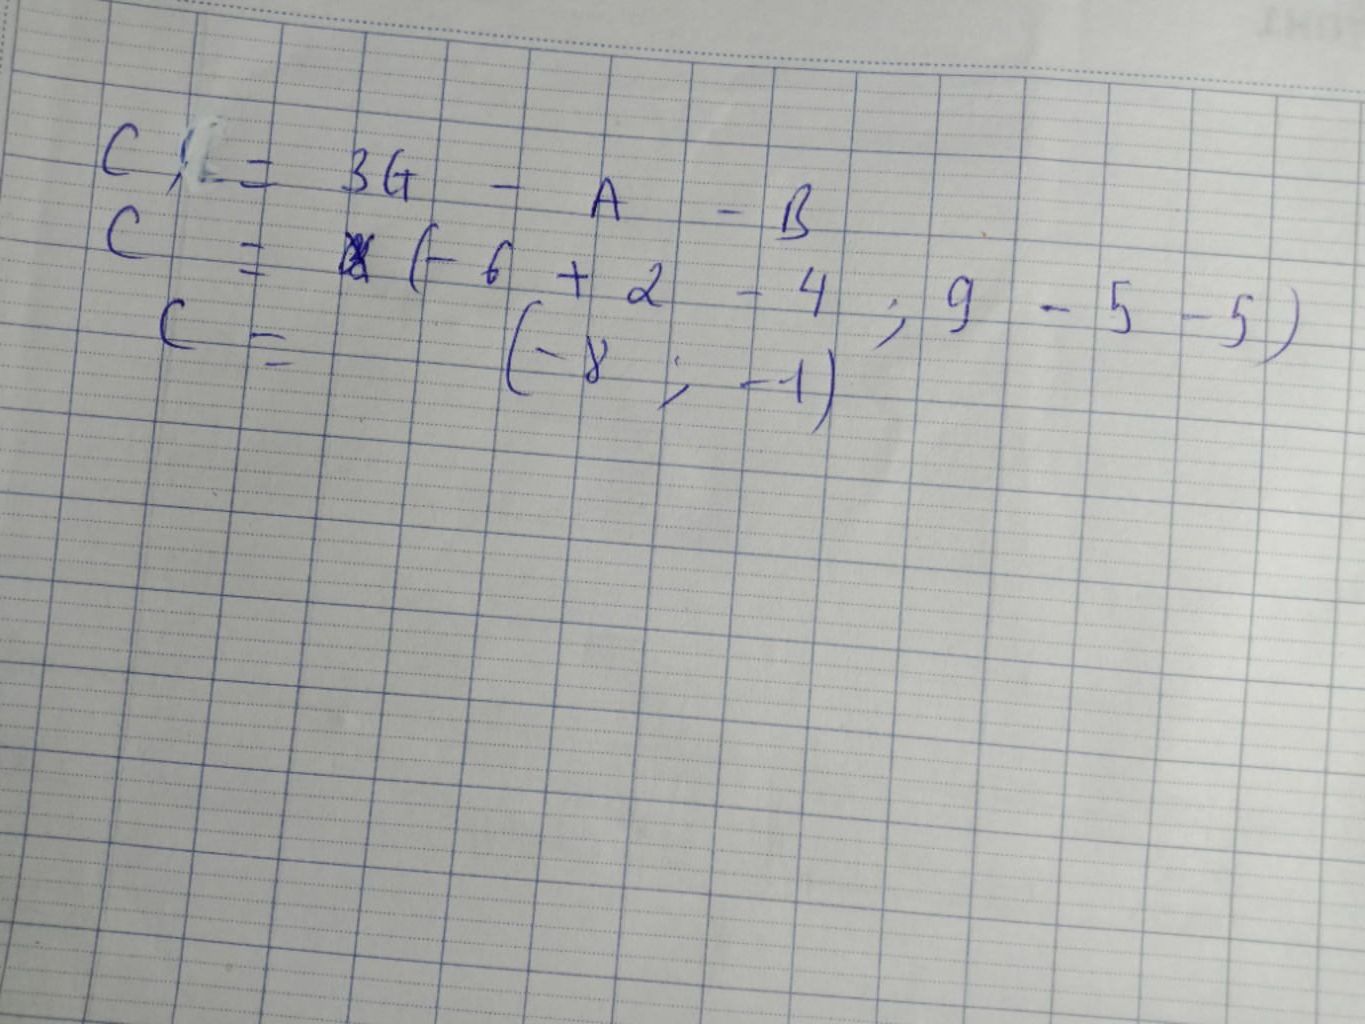 C = 3G - A - B
C = (-6 + 2 - 4 ; 9 - 5 - 5)
C = (-8 ; -1)